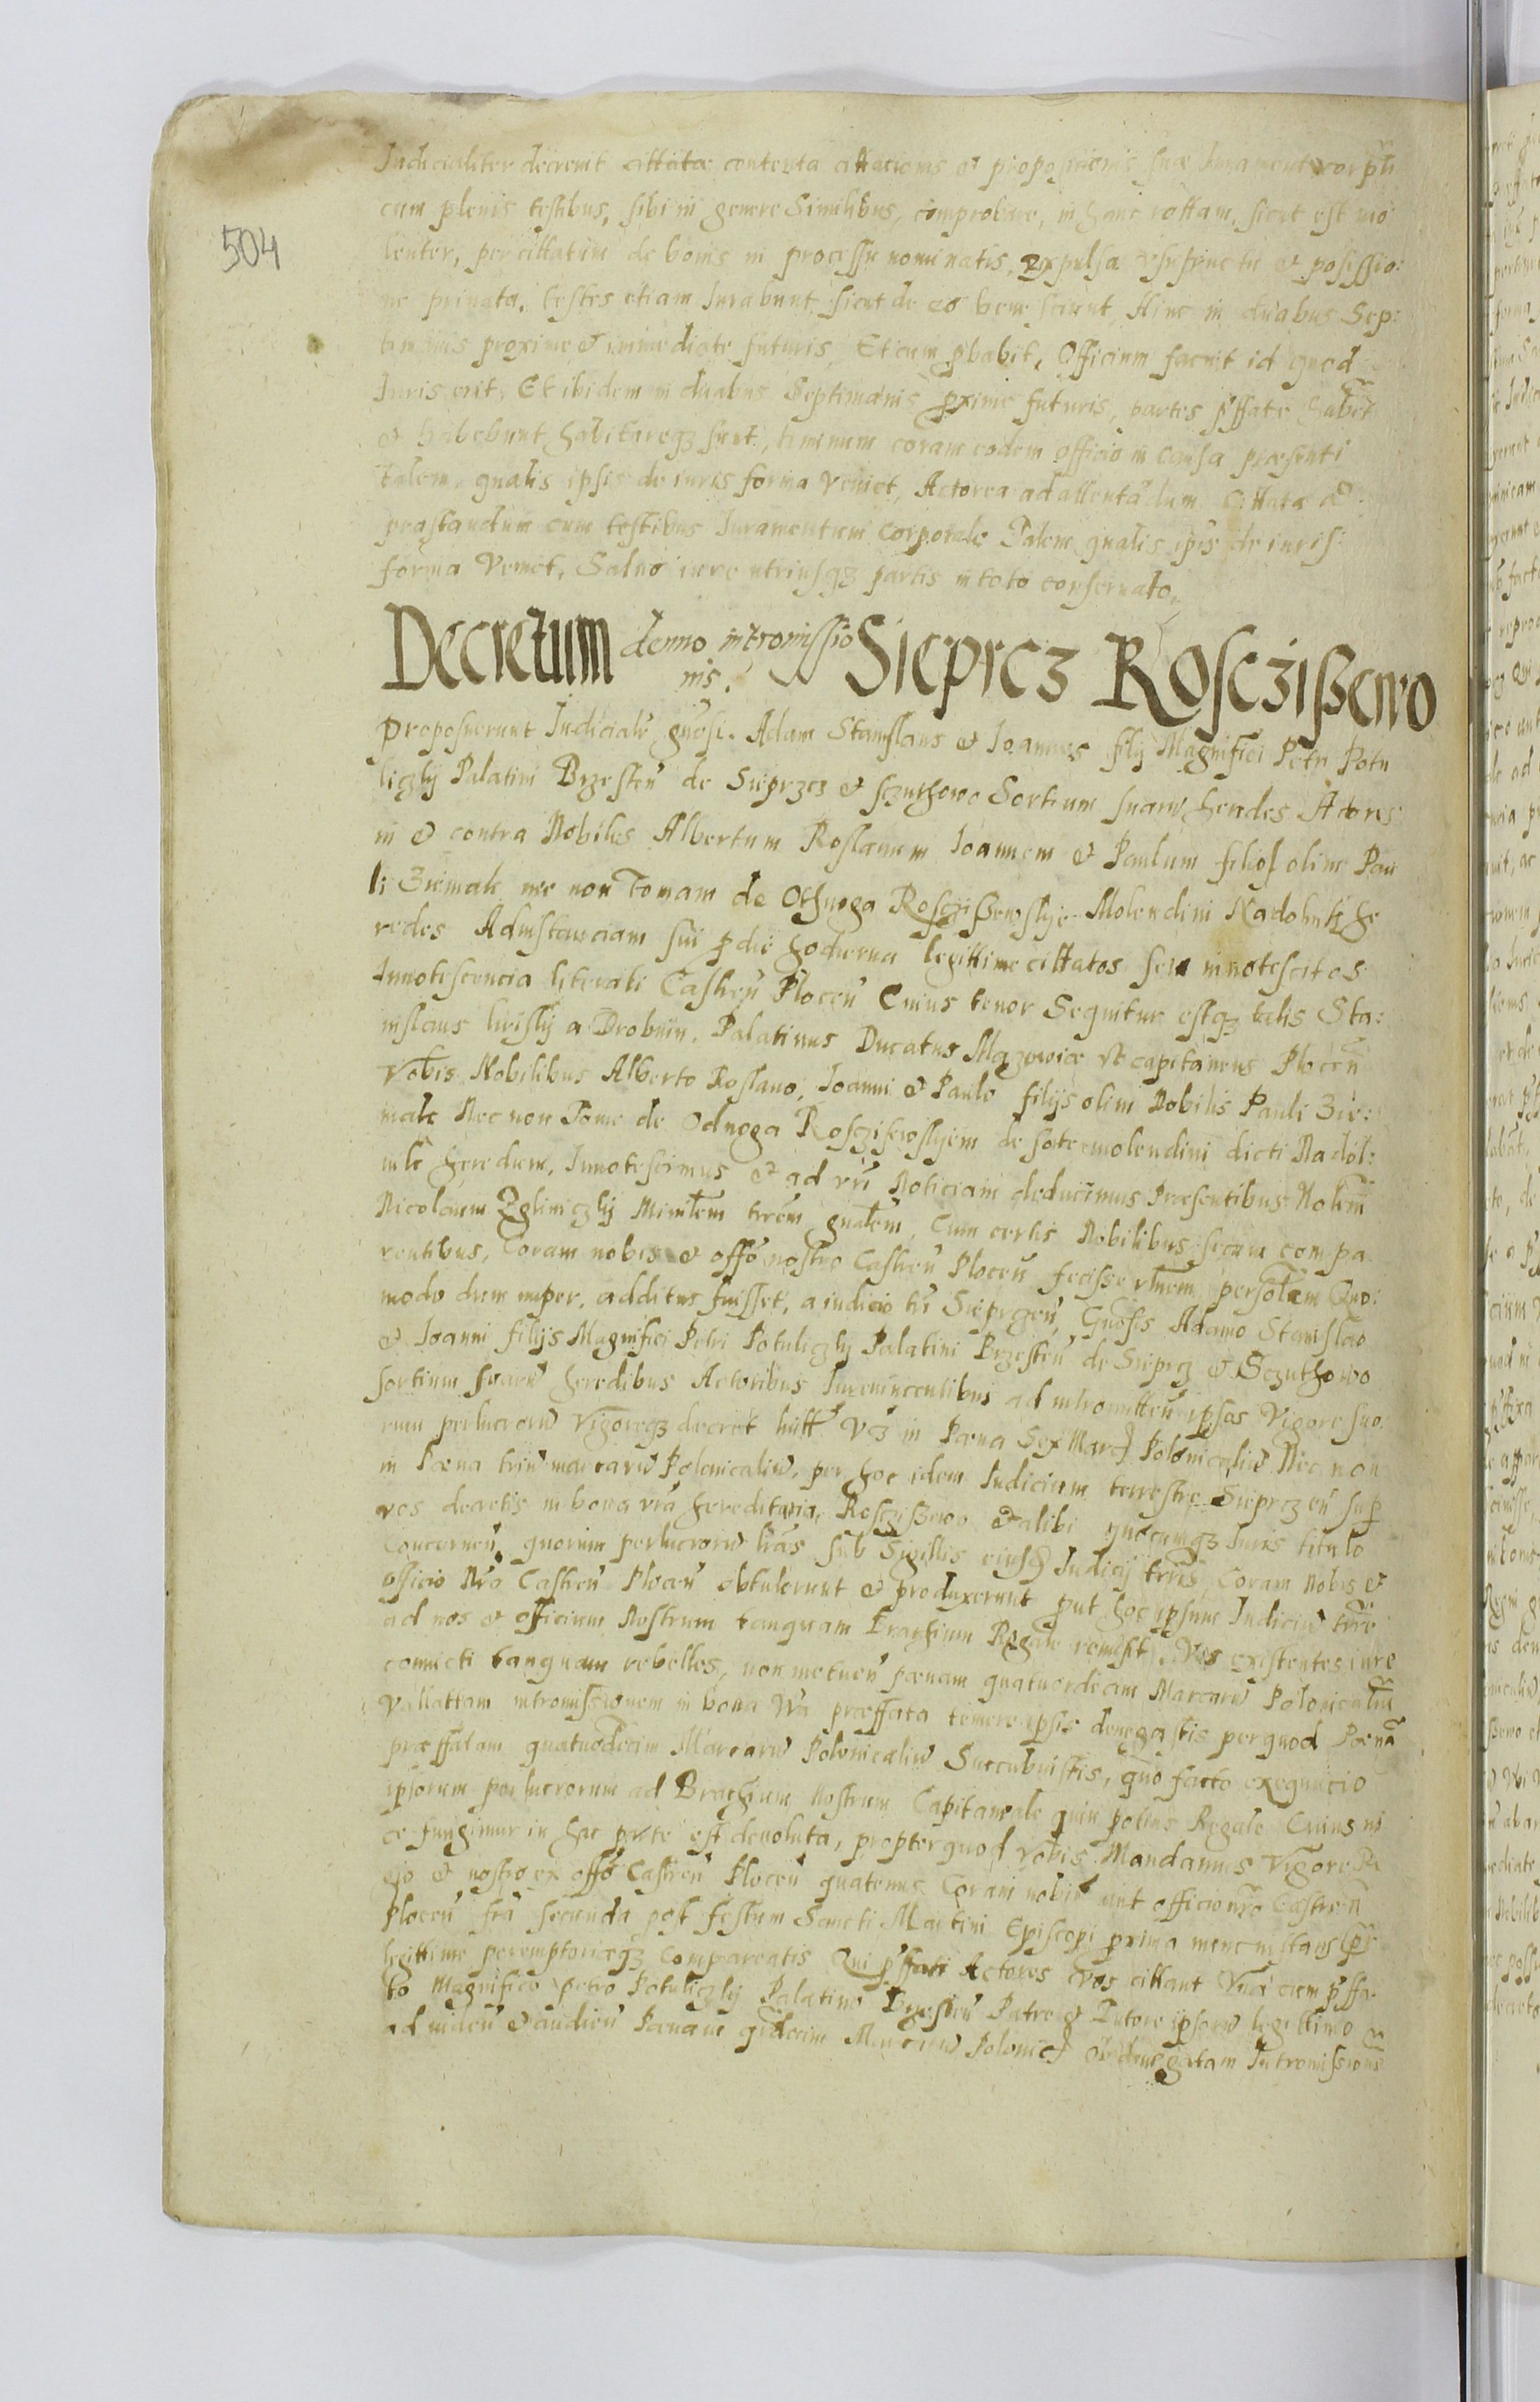 Iudicialiter decrevit cittatæ contenta cittacionis et propositionis suæ Iuramento corpali
cum plenis testibus, sibi in genere Similibus, comprobare, in hanc rottam, sicut est vio
lenter, per cittatum de bonis in processu nominatis, expulsa usufructu et possessio:
ne privata, testes etiam Iurabunt sicut de eo bene sciunt, Hinc in duabus Sep:
timanis proxime et immediate futuris, Et cum pbabit, Officium faciet id quod
Iuris erit, Et ibidem in duabus Septimanis pxime futuris, partes pffate habent
et habebunt, habituręqz sunt, terminum coram eodem officio in causa præsenti
Talem, qualis ipsis de iuris forma veniet, Actorea ad attentandum Cittata ad
præstandum cum testibus Iuramentum corporale Talem qualis ipsis de iuris
forma Veniet, Salvo iure utriusqz partis in toto conservato.
Decretum denno intromissio Sieprcz Rosczißewo
nis.
Proposuerunt Iudicialr gnosi. Adam Stanislaus et Ioannes filÿ Magnifici Petri Potu
liczkÿ Palatini Brzesten de Sieprzcz et sczuthowo Sortium suaru heredes Actores
in et contra Nobiles Albertum Roslanum Ioannem et Paulum filios olim Pau
li Ziemak nec non Tomam de Othnoga Rosczißewskÿe Molendini Nadolnik he
redes Ad instanciam sui p die hodierna legittime cittatos seu innotescitos
Innotescencia literali Castren Plocen Cuius tenor Sequitur estqz talis Sta:
nislaus kriskÿ a Drobnin, Palatinus Ducatus Mazowiæ et capitaneus Plocen
Vobis Nobilibus Alberto Roslano, Ioanni et Paulo filÿs olim Nobilis Pauli Zie:
mak Nec non Tome de Odnoga Rosczisewskÿem de sorte molendini dicti Nadol:
nik heredum, Innotescimus et ad vri Noticiam deducimus Præsentibus Nobilem
Nicolaum Zgliniczkÿ Ministem trem gnalem, Cum certis Nobilibus secum compa
rentibus, Coram nobis et offo nostro Castren Plocen fecisse rlnem psolem Quo:
modo dum nuper, additus fuisset, a iudicio tri Sieprzen, Gnosis Adamo Stanislao
et Ioanni filÿs Magnifici Petri Potuliczkÿ Palatini Brzesten de Sieprcz et Sczuthowo
sortium suaru heredibus Actoribus Iurevincentibus ad intromitten ipsos Vigore suo
rum perlucroru Vigoreqz decreti vz in Pæna Sex Marc Polonicaliu Nec non
in Pæna triu marcaru Polonicaliu, per hoc idem Iudicium terrestre Sieprczen sup
vos decretis in bona vra hereditaria Rosczißewo et alibi quocunqz Iuris titulo
Concernen, quorum perlucroru lras sub Sigillis eiusd Iudicÿ trris, Coram Nobis et
officio Nro Castren Plocen obtulerunt et produxerunt put hoc ipsum Iudiciu trre
ad nos et officium Nostrum tanquam Brachium Regale remisit, Vos existentes iure
convicti tanquam rebelles, non metuen pænam quatuordecim Marcaru Polonicaliu
vallattam intromissionem in bona vra præffata temere ipsis denegastis per quod Pæna
præffatam quatuordecim Marcaru Polonicaliu Succubuistis, quo facto exequucio
ipsorum perlucrorum ad Brachium Nostrum Capitaneale quin potius Regale Cuius vi
ce fungimur in hac parte est devoluta, propter quod vobis Mandamus Vigore Re
gio et nostro ex offo Castren Plocen quatenus Coram nobis aut officio nro Castren
Plocen fria secunda post festum Sancti Martini Episcopi pxima
legittime peremptorieqz compareatis Qui pffati Actores vos cittant Vna cum pffa
to Magnifico Petro Potuliczkÿ Palatino Brzesten Patre et Tutore ipsoru legittimo
ad viden et audien Pænam qudecim Marcaru Polonic ob denegatam Intromissionem
504